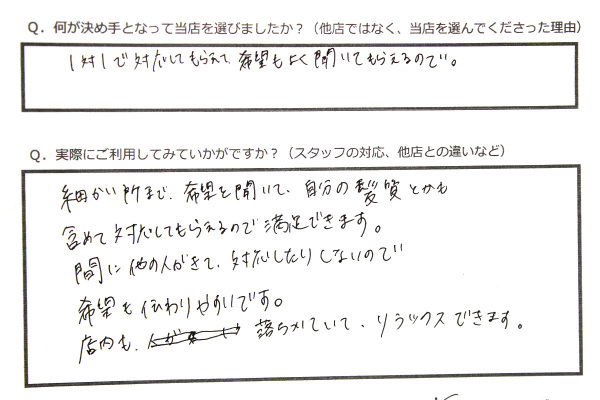 Q．何が決め手となって当店を選びましたか？（他店ではなく、当店を選んでくださった理由）
1対1で対応してもらえて、希望もよく聞いてもらえるので。
Q．実際にご利用してみていかがですか？（スタッフの対応、他店との違いなど）
細かい所まで、希望を聞いて、自分の髪質とかも
含めて対応してもらえるので満足できます。
間に他の人がきて、対応したりしないので
希望も伝わりやすいです。
店内も、落ちついていて、リラックスできます。